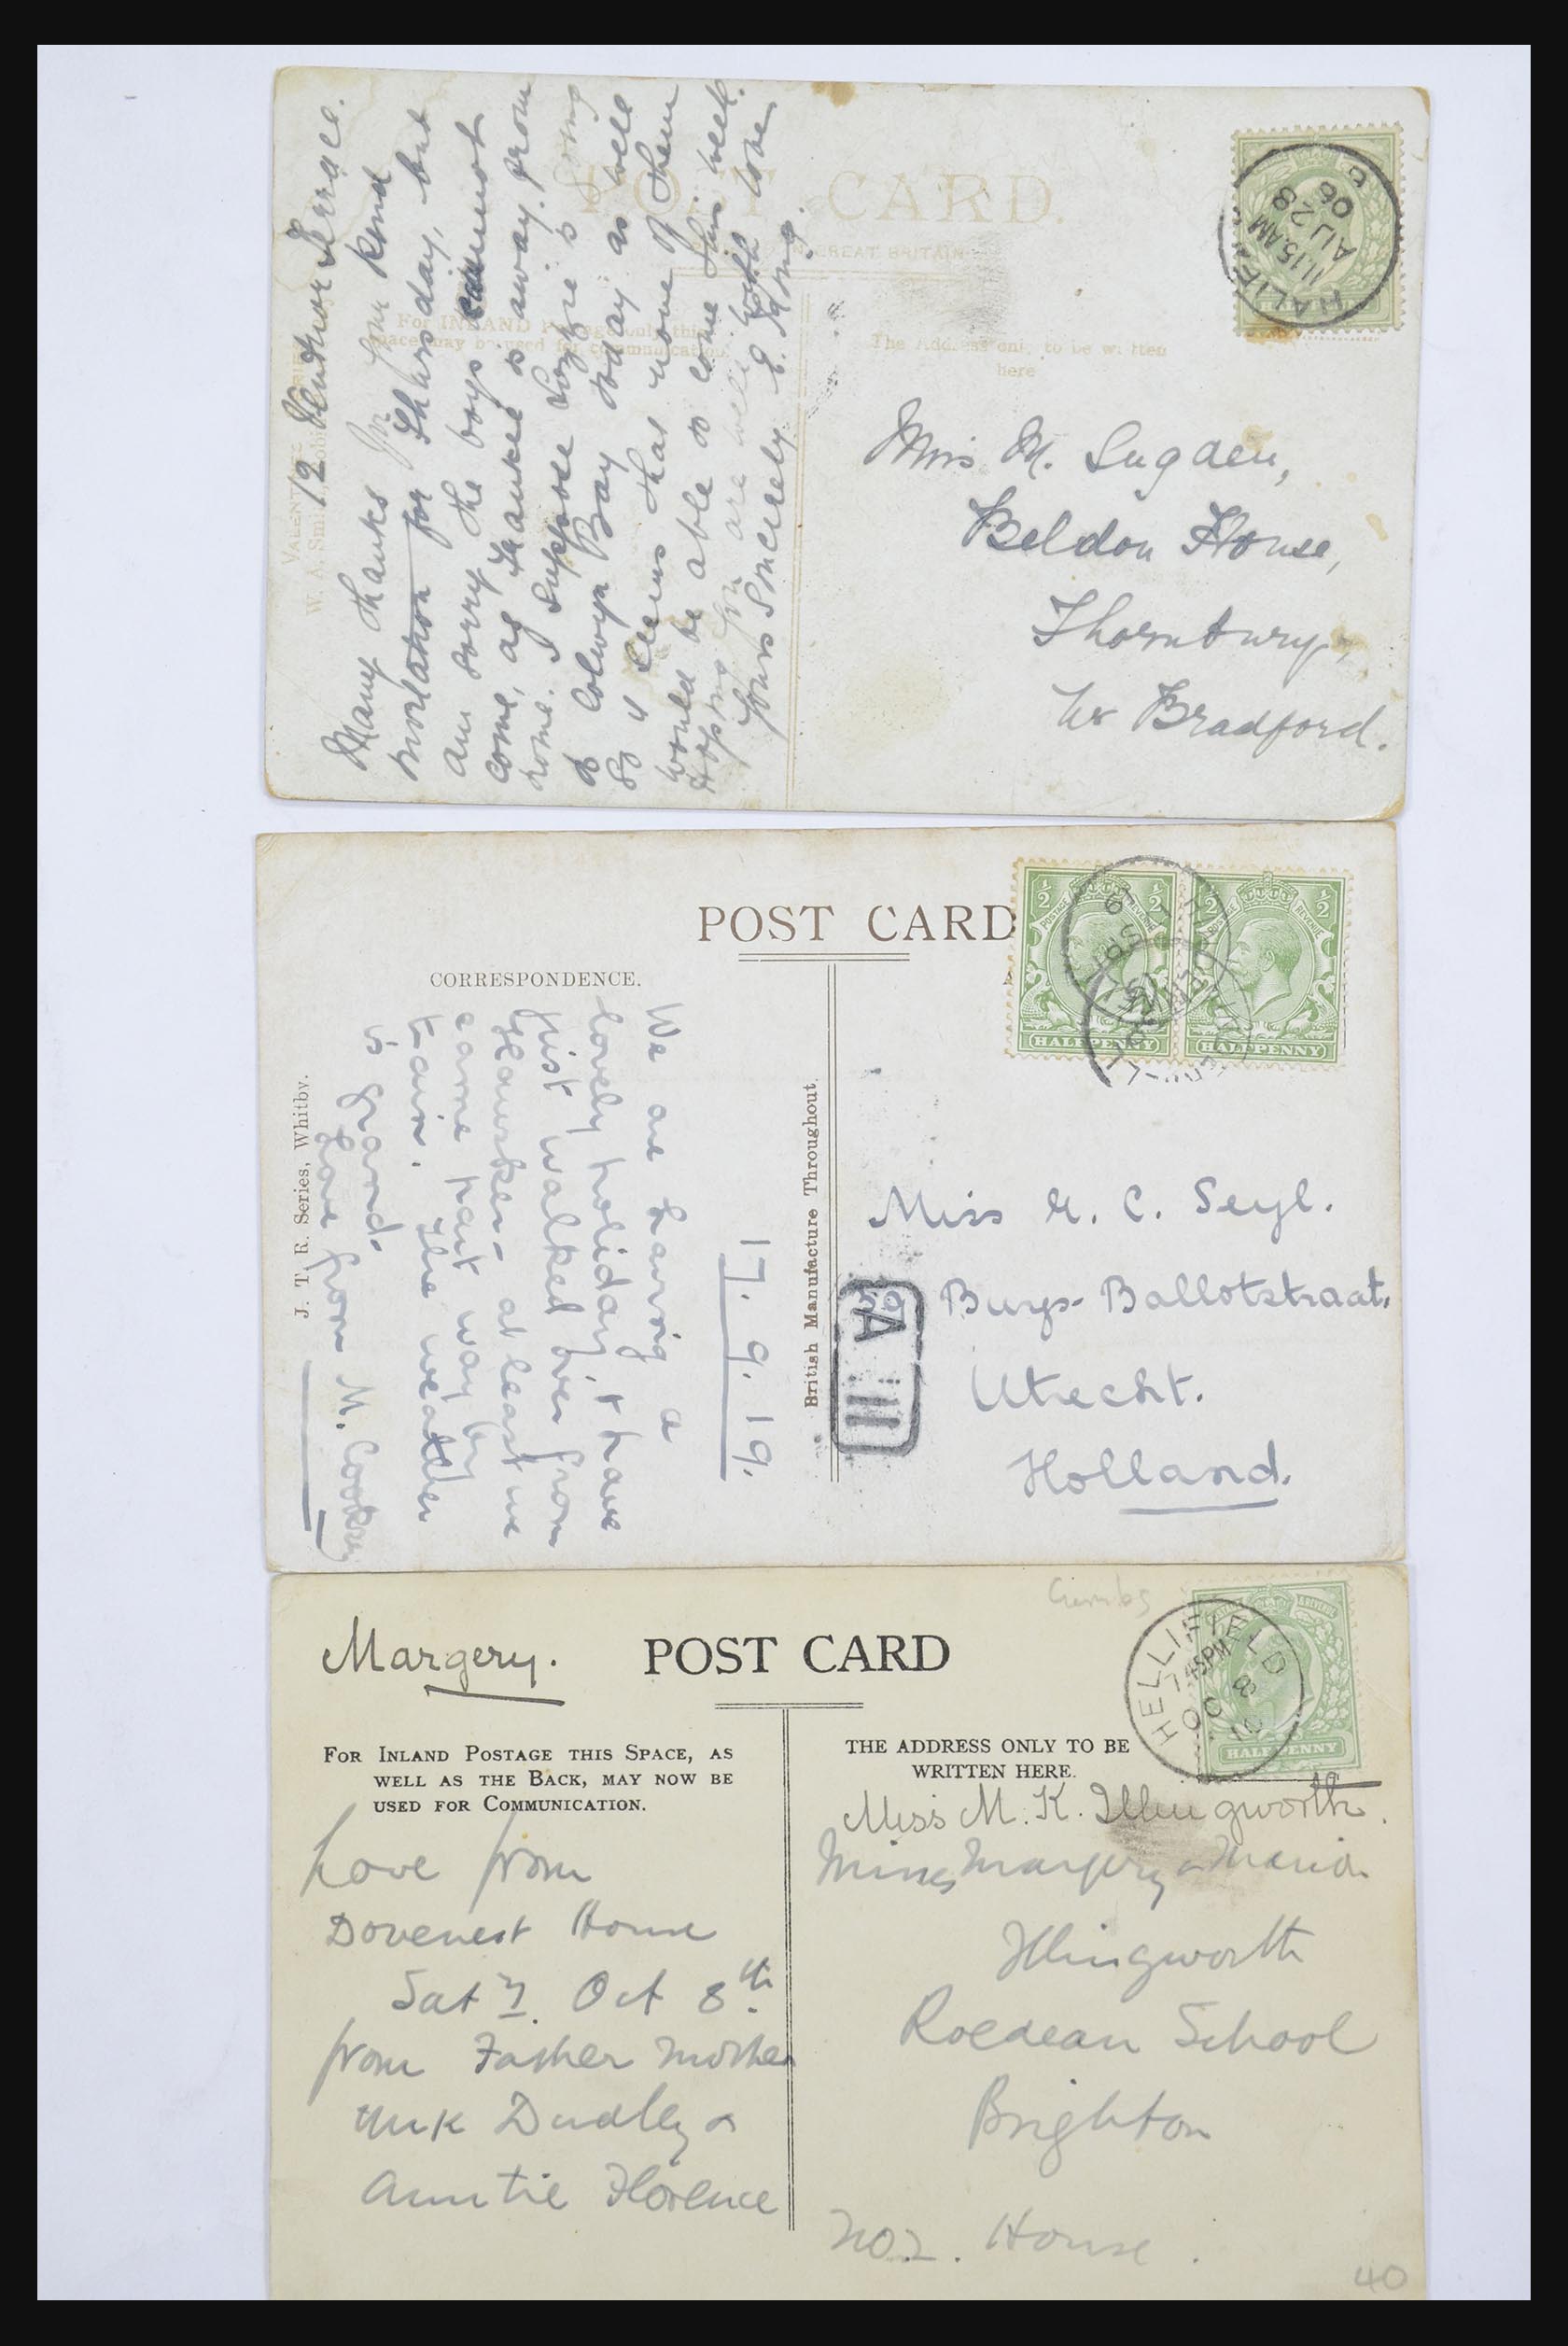 POST CARD.
GREAT BRITAIN
For INLAND Postage only this
space may be used for communication.
The Address only to be written
here
12 Ventnor Terrace.
Many thanks for your kind
invitation for Thursday, but
am sorry the boys cannot
come, as Frankee is away from
home. I suppose Lozzie is going
to Colwyn Bay today as well
so it seems that none of them
would be able to come this week.
Hoping you are well with love
Yours Sincerely E. King.
HALIFAX
11.15 AM
AU 28
06
Miss M. Sugden,
Beldon House,
Thornbury,
Nr Bradford.
POST CARD
CORRESPONDENCE.
J. T. R. Series, Whitby.
British Manufacture Throughout.
17. 9. 19.
We are having a
lovely holiday, & have
just walked over from
Hawsker - at least we
came part way by
train. The weather
is grand.
Love from M.
½ ½ ½ ½
POSTAGE REVENUE
HALFPENNY HALFPENNY
A
Miss G. C. Seyl.
Buys-Ballotstraat,
Utrecht.
Holland.
Margery.
POST CARD
FOR INLAND POSTAGE THIS SPACE, AS
WELL AS THE BACK, MAY NOW BE
USED FOR COMMUNICATION.
THE ADDRESS ONLY TO BE
WRITTEN HERE.
HELLIFIELD
7.45PM
OC 8
10
HALFPENNY
Love from
Dovenest House
Saty. Oct 8th
from Father Mother
Unk Dudley &
Auntie Florence
Miss M. K. Illingworth.
Misses Margery & Maria
Illingworth
Roedean School
Brighton
No 2. House.
40